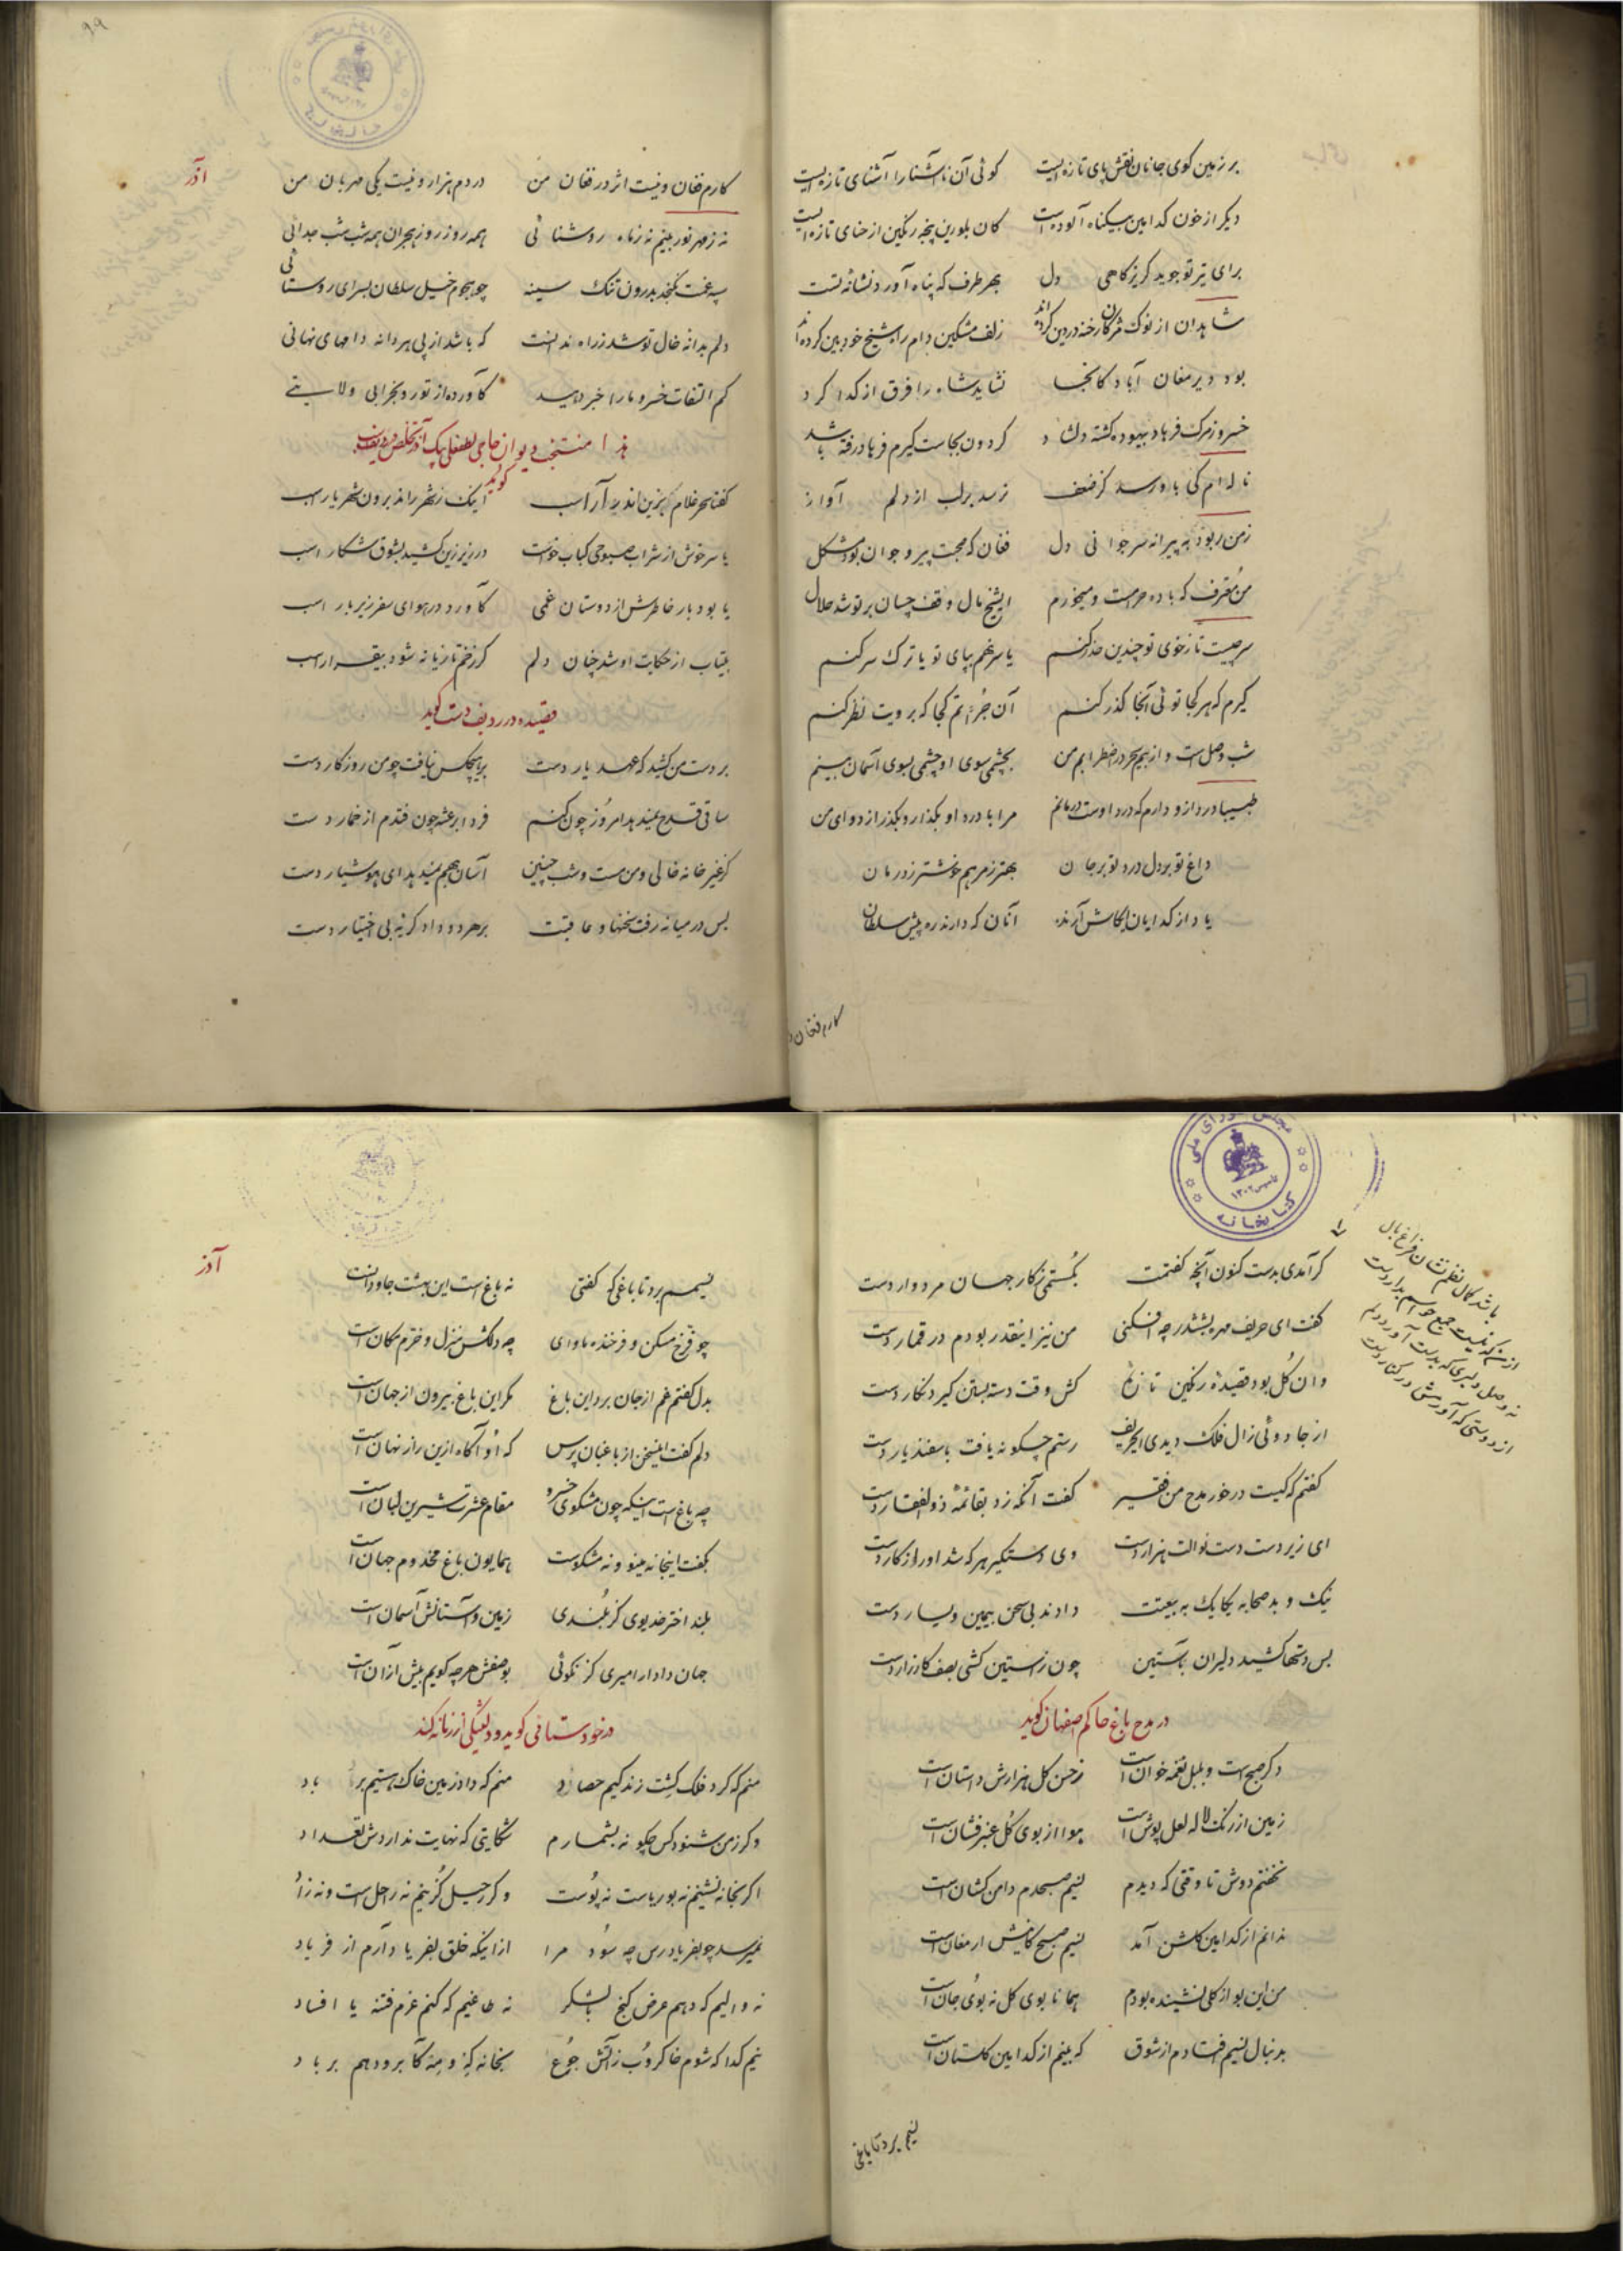 بر زمین کوی جانان نقش پای تازه ایست
کوئی آن ناآشنا را آشنای تازه ایست
دیکر از خون کدامین بیکناه آلوده است
کان بلورین پنجه رنکین از حنای تازه ایست
برای تیر تو جوید کریزکاهی دل
بهر طرف که پناه آورد نشانه تست
شاهدان از نوک مژکان رخنه در دین کرده اند
زلف مشکین دام راه شیخ خودبین کرده اند
بود دیر مغان آباد کانجا
نشاید شاه را فرق از کدا کرد
خسرو ز مرک فرهاد بیهوده کشته دلشاد
کردون بجاست کیرم فرهاد رفته باشد
ناله ام کی باو رسد کز ضعف
نرسد بر لب از دلم آواز
ز من ربود به پیرانه سر جوانی دل
فغان که محبت پیر و جوان بود مشکل
من معترف که باده حرامست و میخورم
ایشیخ مال وقف چسان بر تو شد حلال
سر چیست تا ز خوی تو چندین حذر کنم
یا سر نهم بپای تو یا ترک سر کنم
کیرم که هر کجا توئی آنجا کذر کنم
آن جرأتم کجا که برویت نظر کنم
شب وصل است و از بیم سحر در اضطرابم من
بچشمی سوی او چشمی بسوی آسمان بینم
طبیبا درد ازو دارم که درد اوست درمانم
مرا با درد او بکذار و بکذر از دوای من
داغ تو بر دل درد تو بر جان
بهتر ز مرهم خوشتر ز درمان
یاد از کدایان ایکاش آرند
آنان که دارند ره پیش سلطان
کارم فغان و
۹۹
آذر
کارم فغان و نیست اثر در فغان من
دردم هزار و نیست یکی مهربان من
نه ز مهر نور بینم نه ز ماه روشنائی
همه روز روز هجران همه شب شب جدائی
سپه غمت نکنجد بدرون تنک سینه
چو هجوم خیل سلطان بسرای روستائی
دلم بدانه خال تو شد ز راه ندانست
که باشد از پی هر دانه دامهای نهانی
کم التفات خسرو ما را خبر دهید
کاورده از تو رو بخرابی ولایتی
هذا منتخب دیوان حاجی لطفعلی بیک آذر تخلص در ردیف
کوید
کفتا سحر غلام بزین اندر آر اسب
اینک ز شهر راند برون شهریار اسب
یا سرخوش از شراب صبوحی کباب خواست
در زیر زین کشید بشوق شکار اسب
یا بود بار خاطرش از دوستان غمی
کاورد در هوای سفر زیر بار اسب
بیتاب از حکایت او شد چنان دلم
کز زخم تازیانه شود بیقرار اسب
قصیده در ردیف دست کوید
بر دست من کشید که عهد یار دست
یا هیچکس نیافت چو من روزکار دست
ساقی قدح نمیدهد امروز چون کنم
فردا برعشه چون فتدم از خمار دست
کز غیر خانه خالی و من مست و شب چنین
آسان بهم نمیدهد ای هوشیار دست
بس در میانه رفت سخنها و عاقبت
بر هر دو داد کریه بی اختیار دست
مجلس شورای ملی
تأسیس ۱۳۰۲
کتابخانه
کر آمدی بدست کنون آنچه کفتمت
بکستمی ز کار جهان مردوار دست
کفت ای حریف مهره بششدر چه افکنی
من نیز اینقدر بودم در قمار دست
وان کل بود قصیده رنکین تازه
کش وقت دسته بستن کیرد نکار دست
از جادوئی زال فلک دیدی ایحریف
رستم چکونه یافت باسفندیار دست
کفتم که کیست درخور مدح من فقیر
کفت آنکه زد بقائمه ذوالفقار دست
ای زیردست دست نوالت هزار دست
وی دستکیر هر که شد او را ز کار دست
نیک و بد صحابه یکایک به بیعتت
دادند بی سخن بیمین و یسار دست
بس دستها کشید دلیران بآستین
چون ز آستین کشی بصف کارزار دست
در مدح باغ حاکم اصفهان کوید
دکر صبح است و بلبل نغمه خوان است
ز حسن کل هزارش داستان است
زمین از رنک لاله لعل پوش است
هوا از بوی کل عنبر فشان است
نخفتم دوش تا وقتی که دیدم
نسیم صبحدم دامن کشان است
ندانم از کدامین کلشن آمد
نسیم صبح کاینش ارمغان است
من این بو از کلی نشنیده بودم
همانا بوی کل نه بوی جان است
بدنبال نسیم افتادم از شوق
که بینم از کدامین کلستان است
نسیم برد تا باغی
آذر
نسیمم برد تا باغی که کفتی
نه باغ است این بهشت جاودانست
چو فرخ مسکن و فرخنده ماوای
چه دلکش منزل و خرم مکان است
بدل کفتم غم از جان برد این باغ
مکر این باغ بیرون از جهان است
دلم کفت اینسخن از باغبان پرس
که او آکاه ازین راز نهان است
چه باغ است اینکه چون مشکوی خسرو
مقام عشرت شیرین لبان است
بکفت اینجا نه مینو و نه مشکوست
همایون باغ مخدوم جهان است
بلند اختر خدیوی کز بلندی
زمین و آستانش آسمان است
جهان دادار امیری کز نکوئی
بوصفش هر چه کویم بیش از آن است
در خودستائی کوید و دلتنکی از زمانه کند
منم که کرد فلک کشت زندکیم حصاد
منم که داد زمین خاک هستیم بر باد
وکر ز من شنود کس چکونه بشمارم
شکایتی که نهایت نداردش تعداد
اکر بخانه نشینم نه بوریاست نه پوست
وکر رحیل کزینم نه راحل است و نه زاد
نمیرسد چو بفریادرس چه سود مرا
از اینکه خلق بفریاد آرم از فریاد
نه والیم که دهم عرض کنج یا لشکر
نه طاغیم که کنم عزم فتنه یا افساد
نیم کدا که شوم خاکروب ز آتش جوع
بخانه که و مه کابرو دهم بر باد